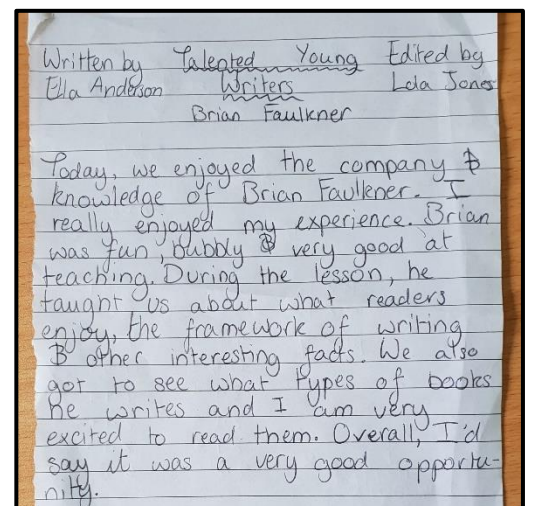 Written by Talented Young Edited by
Ella Anderson Writers Lola Jones
Brian Faulkner
Today, we enjoyed the company &
knowledge of Brian Faulkener. I
really enjoyed my experience. Brian
was fun, bubbly & very good at
teaching. During the lesson, he
taught us about what readers
enjoy, the framework of writing
& other interesting facts. We also
got to see what types of books
he writes and I am very
excited to read them. Overall, I'd
say it was a very good opportu-
nity.